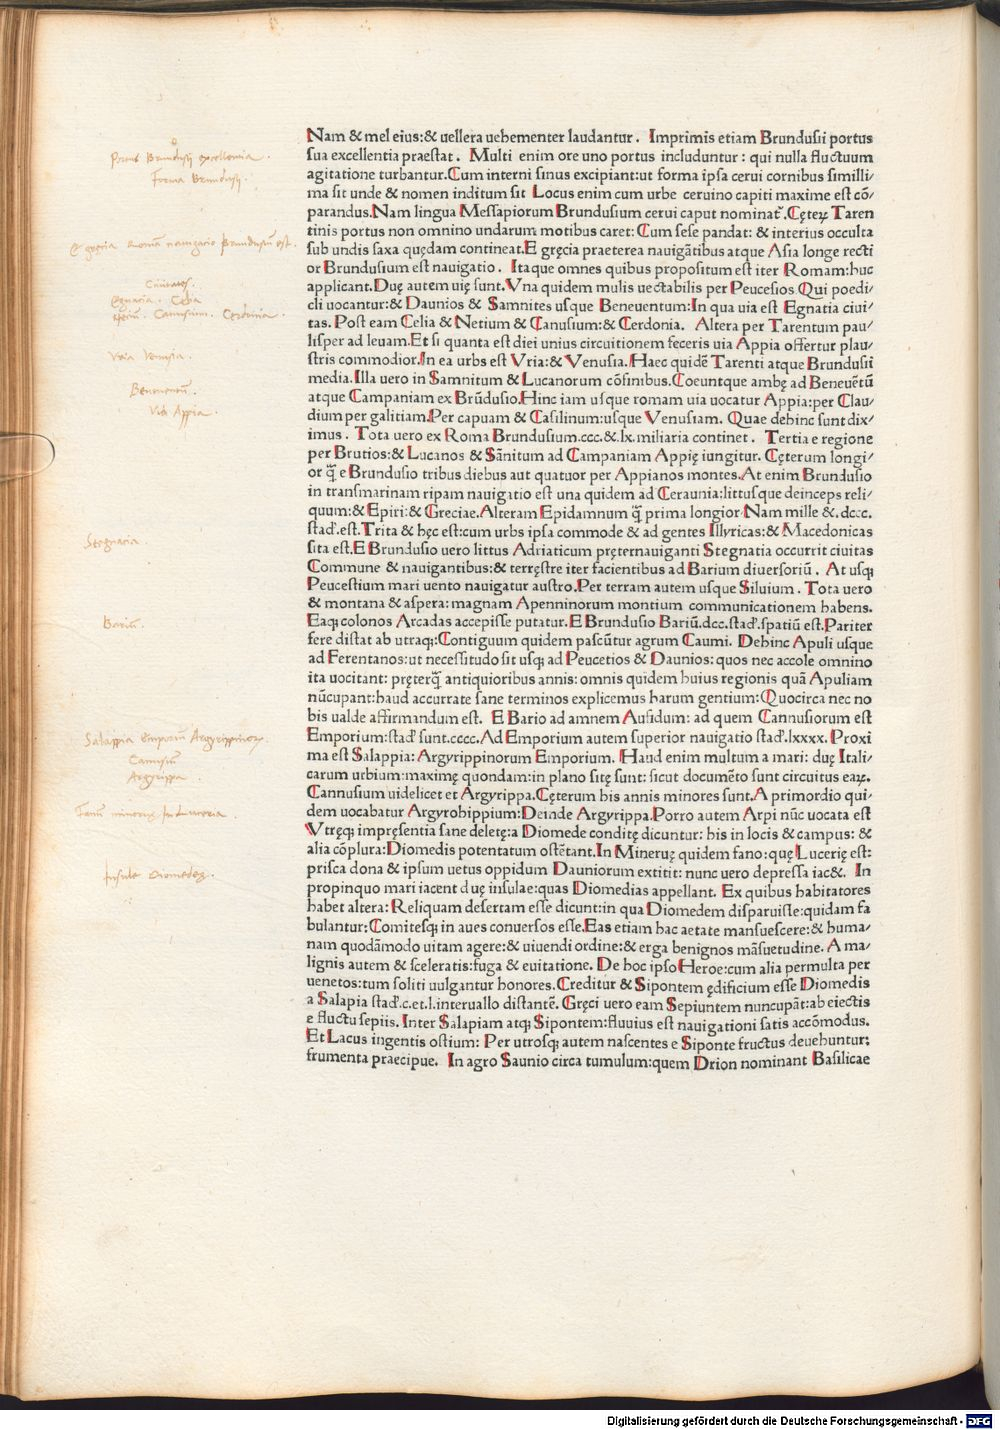 Portus Brundusij excellentia .
Forma Brundusij .
E gręcia Romam navigatio Brundusium est .
Civitates .
Egnatia . Celia
Netium . Canusium . Cerdonia .
Vria Venusia .
Beneventum .
Via Appia .
Stegnatia .
Barium .
Salappia emporium Argyrippinorum .
Canusium
Argyrippa .
Fanum minerve in Luceria .
Insule Diomedee .
Nam & mel eius:& uellera uehementer laudantur . Imprimis etiam Brundusii portus
sua excellentia praestat . Multi enim ore uno portus includuntur : qui nulla fluctuum
agitatione turbantur.Cum interni sinus excipiant:ut forma ipsa cerui cornibus simılli/
ma sit unde & nomen inditum sit Locus enim cum urbe ceruino capiti maxime est cō/
parandus.Nam lingua Messapiorum Brundusium cerui caput nominat᷑. Cęteꝝ Taren
tinis portus non omnino undarum motibus caret: Cum sese pandat: & interius occulta
sub undis saxa quędam contineat.E gręcia praeterea nauigātibus atque Asia longe recti
or Brundusium est nauigatio . Itaque omnes quibus propositum est iter Romam:huc
applicant.Duę autem uię sunt.Vna quidem mulis uectabilis per Peucesios Qui poedi/
cli uocantur:& Daunios & Samnites usque Beneuentum:In qua uia est Egnatia ciui/
tas. Post eam Celia & Netium & Canusium:& Cerdonia. Altera per Tarentum pau/
lisper ad leuam.Et si quanta est diei unius circuitionem feceris uia Appia offertur plau/
stris commodior.In ea urbs est Vria:& Venusia. Haec quidē Tarenti atque Brundusii
media.Illa uero in Samnitum & Lucanorum cōfinibus.Coeuntque ambę ad Beneuētū
atque Campaniam ex Brūdusio.Hinc iam usque romam uia uocatur Appia:per Clau/
dium per galitiam.Per capuam & Casilinum:usque Venusiam. Quae dehinc sunt dix/
imus . Tota uero ex Roma Brundusium.ccc.&.lx.miliaria continet . Tertia e regione
per Brutios:& Lucanos & Sānitum ad Campaniam Appię iungitur. Cęterum longi/
or q̄ e Brundusio tribus diebus aut quatuor per Appianos montes.At enim Brundusio
in transmarinam ripam nauigatio est una quidem ad Ceraunia:littusque deinceps reli/
quum:& Epiri:& Greciae.Alteram Epidamnum q̄ prima longior Nam mille &.dccc.
stad'.est.Trita & hęc est:cum urbs ipsa commode & ad gentes Illyricas:& Macedonicas
sita est.E Brundusio uero littus Adriaticum pręternauiganti Stegnatia occurrit ciuitas
Commune & nauigantibus:& terręstre iter facientibus ad Barium diuersoriū . At usqꝫ
Peucestium mari uento nauigatur austro.Per terram autem usque Siluium . Tota uero
& montana & aspera: magnam Apenninorum montium communicationem habens.
Eaqꝫ colonos Arcadas accepisse putatur.E Brundusio Bariū.dcc.stad'.spatiū est.Pariter
fere distat ab utraqꝫ:Contiguum quidem pascūtur agrum Caumi. Dehinc Apuli usque
ad Ferentanos:ut necessitudo sit usqꝫ ad Peucetios & Daunios: quos nec accole omnino
ita uocitant: pręterq̄ antiquioribus annis: omnis quidem huius regionis quā Apuliam
nūcupant:haud accurrate sane terminos explicemus harum gentium:Quocirca nec no
bis ualde affirmandum est. E Bario ad amnem Ausidum: ad quem Cannusiorum est
Emporium:stad' sunt.cccc. Ad Emporium autem superior nauigatio stad'.lxxxx. Proxi
ma est Salappia: Argyrippinorum Emporium. Haud enim multum a mari: duę Itali/
carum urbium:maximę quondam:in plano sitę sunt: sicut documēto sunt circuitus eaꝝ.
Cannusium uidelicet et Argyrippa.Cęterum his annis minores sunt.A primordio qui/
dem uocabatur Argyrohippium:Deinde Argyrippa.Porro autem Arpi nūc uocata est
Vtręqꝫ impręsentia sane deletę:a Diomede conditę dicuntur: his in locis & campus: &
alia cōplura:Diomedis potentatum ostētant.In Mineruę quidem fano:quę Lucerię est:
prisca dona & ipsum uetus oppidum Dauniorum extitit: nunc uero depressa iac&. In
propinquo mari iacent duę insulae:quas Diomedias appellant. Ex quibus habitatores
habet altera: Reliquam desertam esse dicunt:in qua Diomedem disparuisse:quidam fa
bulantur: Comitesqꝫ in aues conuersos esse.Eas etiam hac aetate mansuescere:& huma/
nam quodāmodo uitam agere:& uiuendi ordine:& erga benignos māsuetudine. A ma/
lignis autem & sceleratis:fuga & euitatione. De hoc ipso Heroe:cum alia permulta per
uenetos:tum soliti uulgantur honores. Creditur & Sipontem ędificium esse Diomedis
a Salapia stad'.c.et.l.interuallo distantē. Gręci uero eam Sepiuntem nuncupāt:ab eiectis
e fluctu sepiis. Inter Salapiam atqꝫ Sipontem:fluuius est nauigationi satis accōmodus.
Et Lacus ingentis ostium: Per utrosqꝫ autem nascentes e Siponte fructus deuehuntur:
frumenta praecipue. In agro Saunio circa tumulum:quem Drion nominant Basilicae
Digitalisierung gefördert durch die Deutsche Forschungsgemeinschaft - DFG